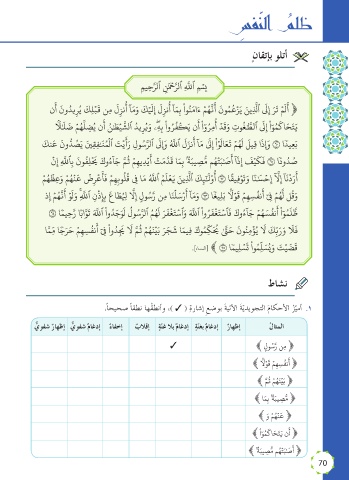 ظُلْمُ النَّفْسِ
أتلو بإتقانٍ
بِسْمِ ٱللَّهِ ٱلرَّحْمَٰنِ ٱلرَّحِيمِ
﴿ أَلَمْ تَرَ إِلَى ٱلَّذِينَ يَزْعُمُونَ أَنَّهُمْ ءَامَنُوا۟ بِمَآ أُنزِلَ إِلَيْكَ وَمَآ أُنزِلَ مِن قَبْلِكَ يُرِيدُونَ أَن
يَتَحَاكَمُوٓا۟ إِلَى ٱلطَّٰغُوتِ وَقَدْ أُمِرُوٓا۟ أَن يَكْفُرُوا۟ بِهِۦ وَيُرِيدُ ٱلشَّيْطَٰنُ أَن يُضِلَّهُمْ ضَلَٰلًۢا
بَعِيدًا ٦٠ وَإِذَا قِيلَ لَهُمْ تَعَالَوْا۟ إِلَىٰ مَآ أَنزَلَ ٱللَّهُ وَإِلَى ٱلرَّسُولِ رَأَيْتَ ٱلْمُنَٰفِقِينَ يَصُدُّونَ عَنكَ
صُدُودًا ٦١ فَكَيْفَ إِذَآ أَصَٰبَتْهُم مُّصِيبَةٌۢ بِمَا قَدَّمَتْ أَيْدِيهِمْ ثُمَّ جَآءُوكَ يَحْلِفُونَ بِٱللَّهِ إِنْ
أَرَدْنَآ إِلَّآ إِحْسَٰنًا وَتَوْفِيقًا ٦٢ أُو۟لَٰٓئِكَ ٱلَّذِينَ يَعْلَمُ ٱللَّهُ مَا فِى قُلُوبِهِمْ فَأَعْرِضْ عَنْهُمْ وَعِظْهُمْ
وَقُل لَّهُمْ فِىٓ أَنفُسِهِمْ قَوْلًۢا بَلِيغًا ٦٣ وَمَآ أَرْسَلْنَا مِن رَّسُولٍ إِلَّا لِيُطَاعَ بِإِذْنِ ٱللَّهِ وَلَوْ أَنَّهُمْ إِذ
ظَّلَمُوٓا۟ أَنفُسَهُمْ جَآءُوكَ فَٱسْتَغْفَرُوا۟ ٱللَّهَ وَٱسْتَغْفَرَ لَهُمُ ٱلرَّسُولُ لَوَجَدُوا۟ ٱللَّهَ تَوَّابًا رَّحِيمًا ٦٤
فَلَا وَرَبِّكَ لَا يُؤْمِنُونَ حَتَّىٰ يُحَكِّمُوكَ فِيمَا شَجَرَ بَيْنَهُمْ ثُمَّ لَا يَجِدُوا۟ فِىٓ أَنفُسِهِمْ حَرَجًا مِّمَّا
قَضَيْتَ وَيُسَلِّمُوا۟ تَسْلِيمًا ٦٥ ﴾ [النساء]
نشاط
١. أميّز الأحكام التجويديّة الآتية بوضع إشارة ( ✓ )، وأنطقها نطقاً صحيحاً.
المثال إظهارٌ إدغامٌ بغنّة إدغامٌ بلا غنّة إقلابٌ إخفاءٌ إدغامٌ شفويٌّ إظهارٌ شفويٌّ
﴿ مِن رَّسُولٍ ﴾ ✓
﴿ أَنفُسِهِمْ قَوْلًا ﴾
﴿ بَيْنَهُمْ ثُمَّ ﴾
﴿ مُّصِيبَةٌۢ بِمَا ﴾
﴿ عَنْهُمْ وَ ﴾
﴿ أَن يَتَحَاكَمُوٓا۟ ﴾
﴿ أَصَٰبَتْهُم مُّصِيبَةٌ ﴾
70